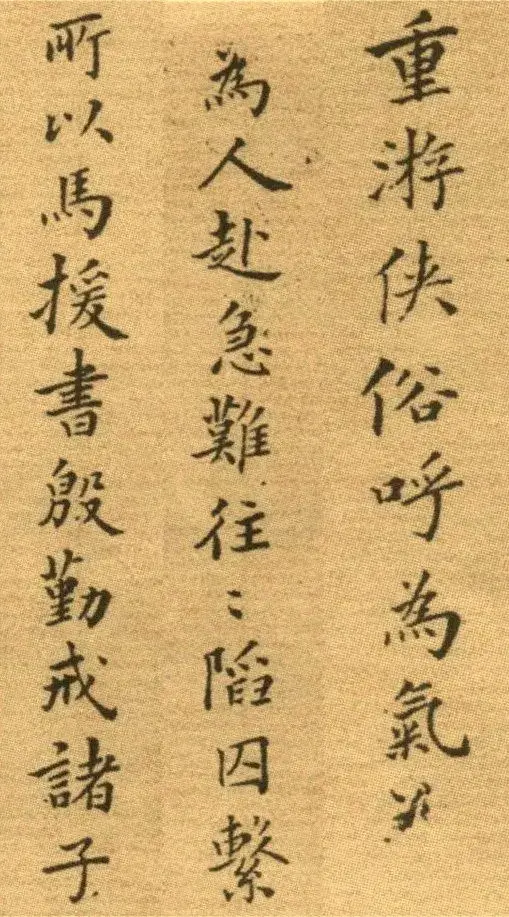 重游俠俗呼為氣
為人赴急難往〻陷囚繫
所以馬援書殷勤戒諸子